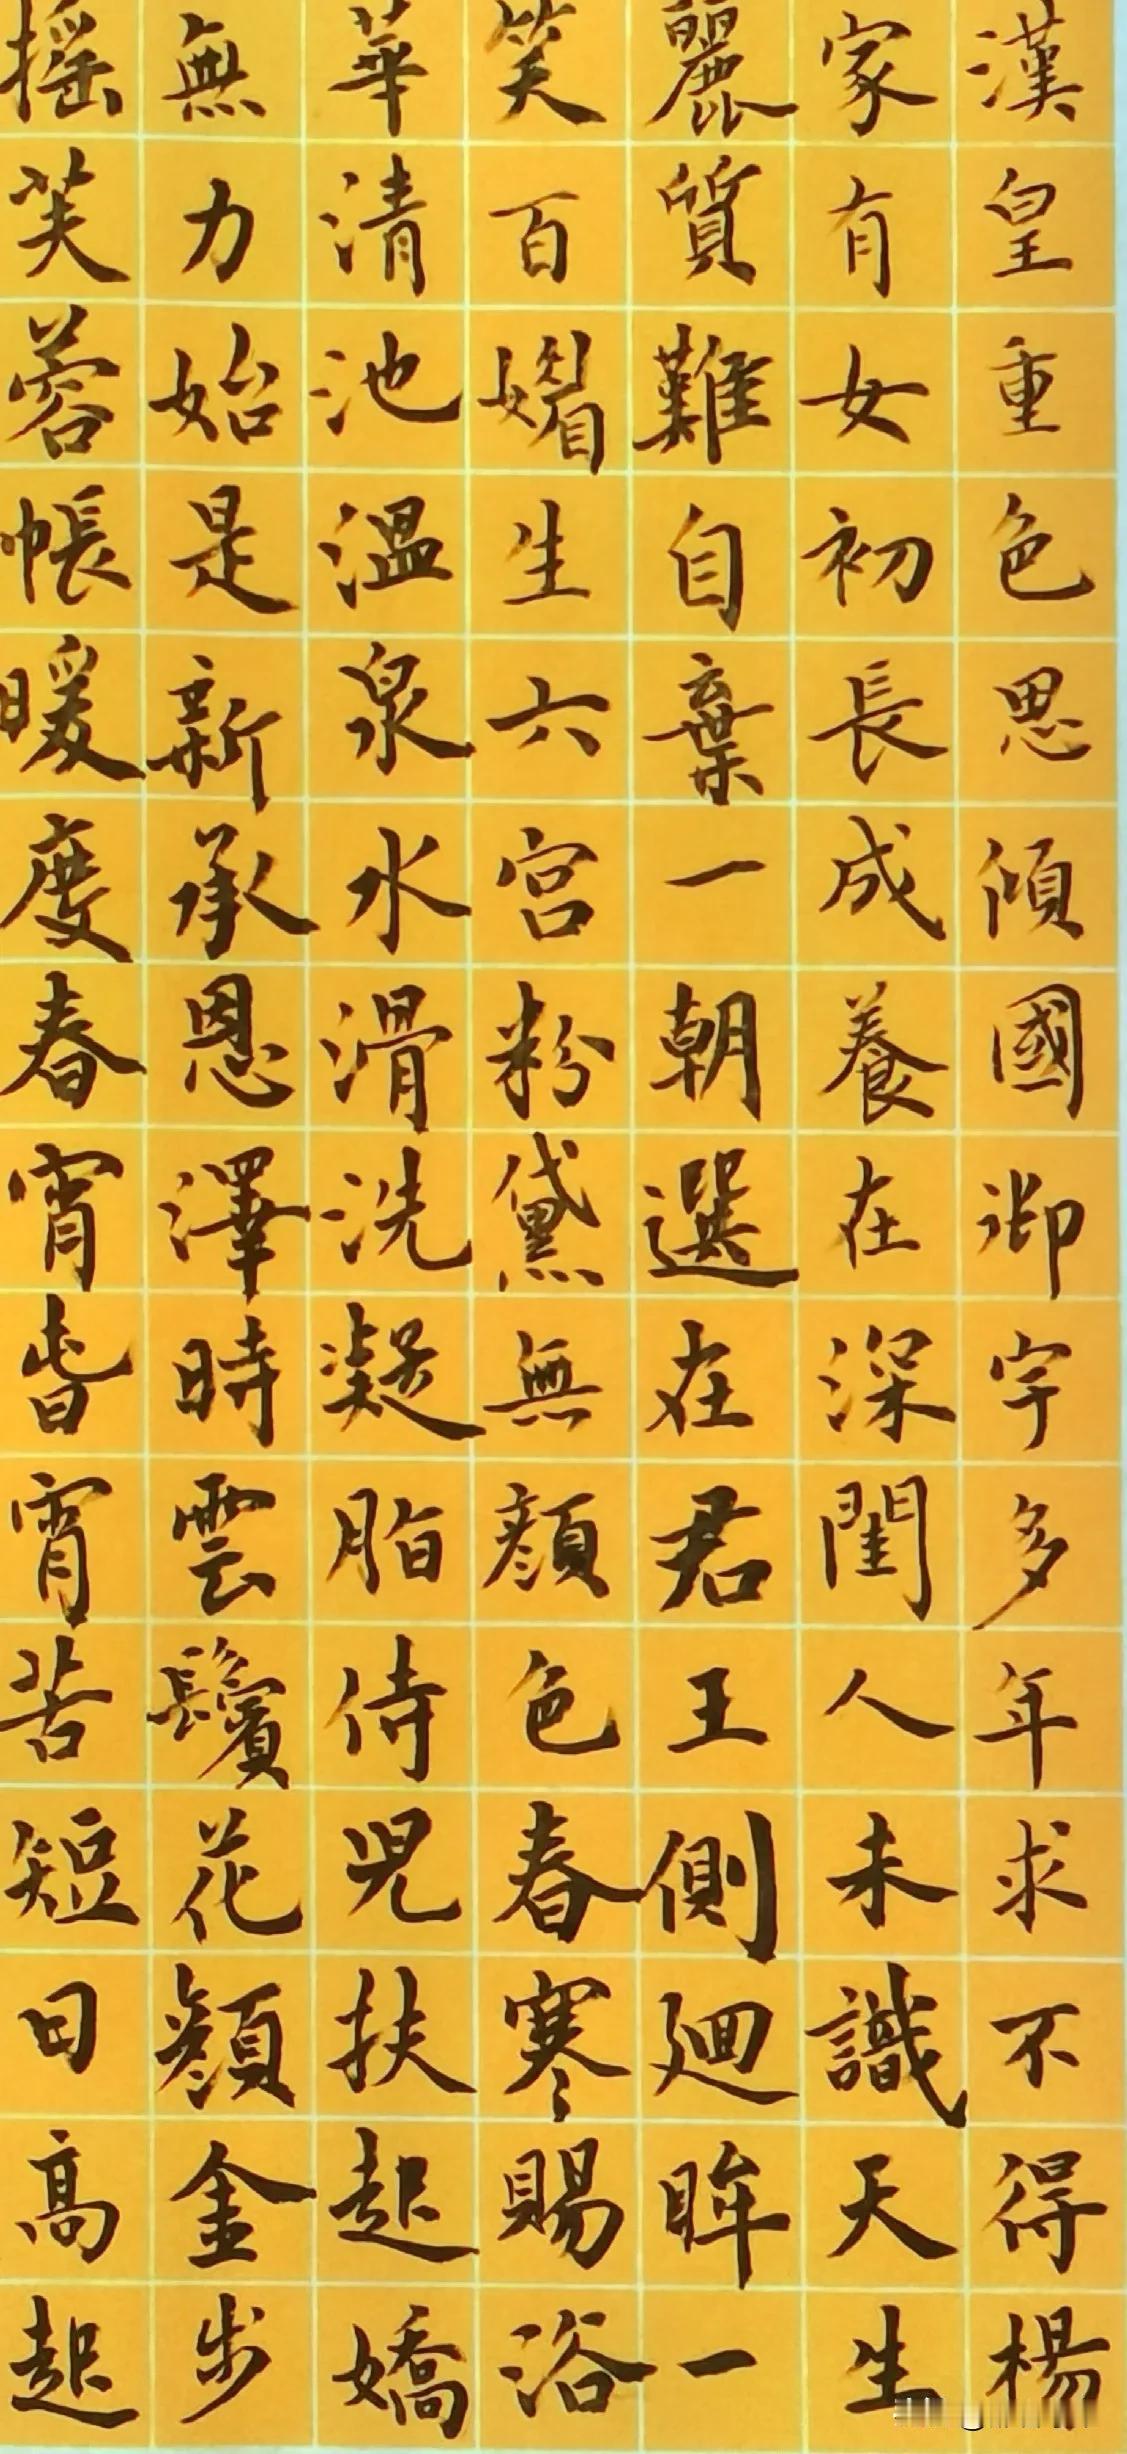 漢皇重色思傾國御宇多年求不得楊
家有女初長成養在深閨人未識天生
麗質難自棄一朝選在君王側迴眸一
笑百媚生六宮粉黛無顏色春寒賜浴
華清池溫泉水滑洗凝脂侍兒扶起嬌
無力始是新承恩澤時雲鬢花顏金步
搖芙蓉帳暖度春宵春宵苦短日高起